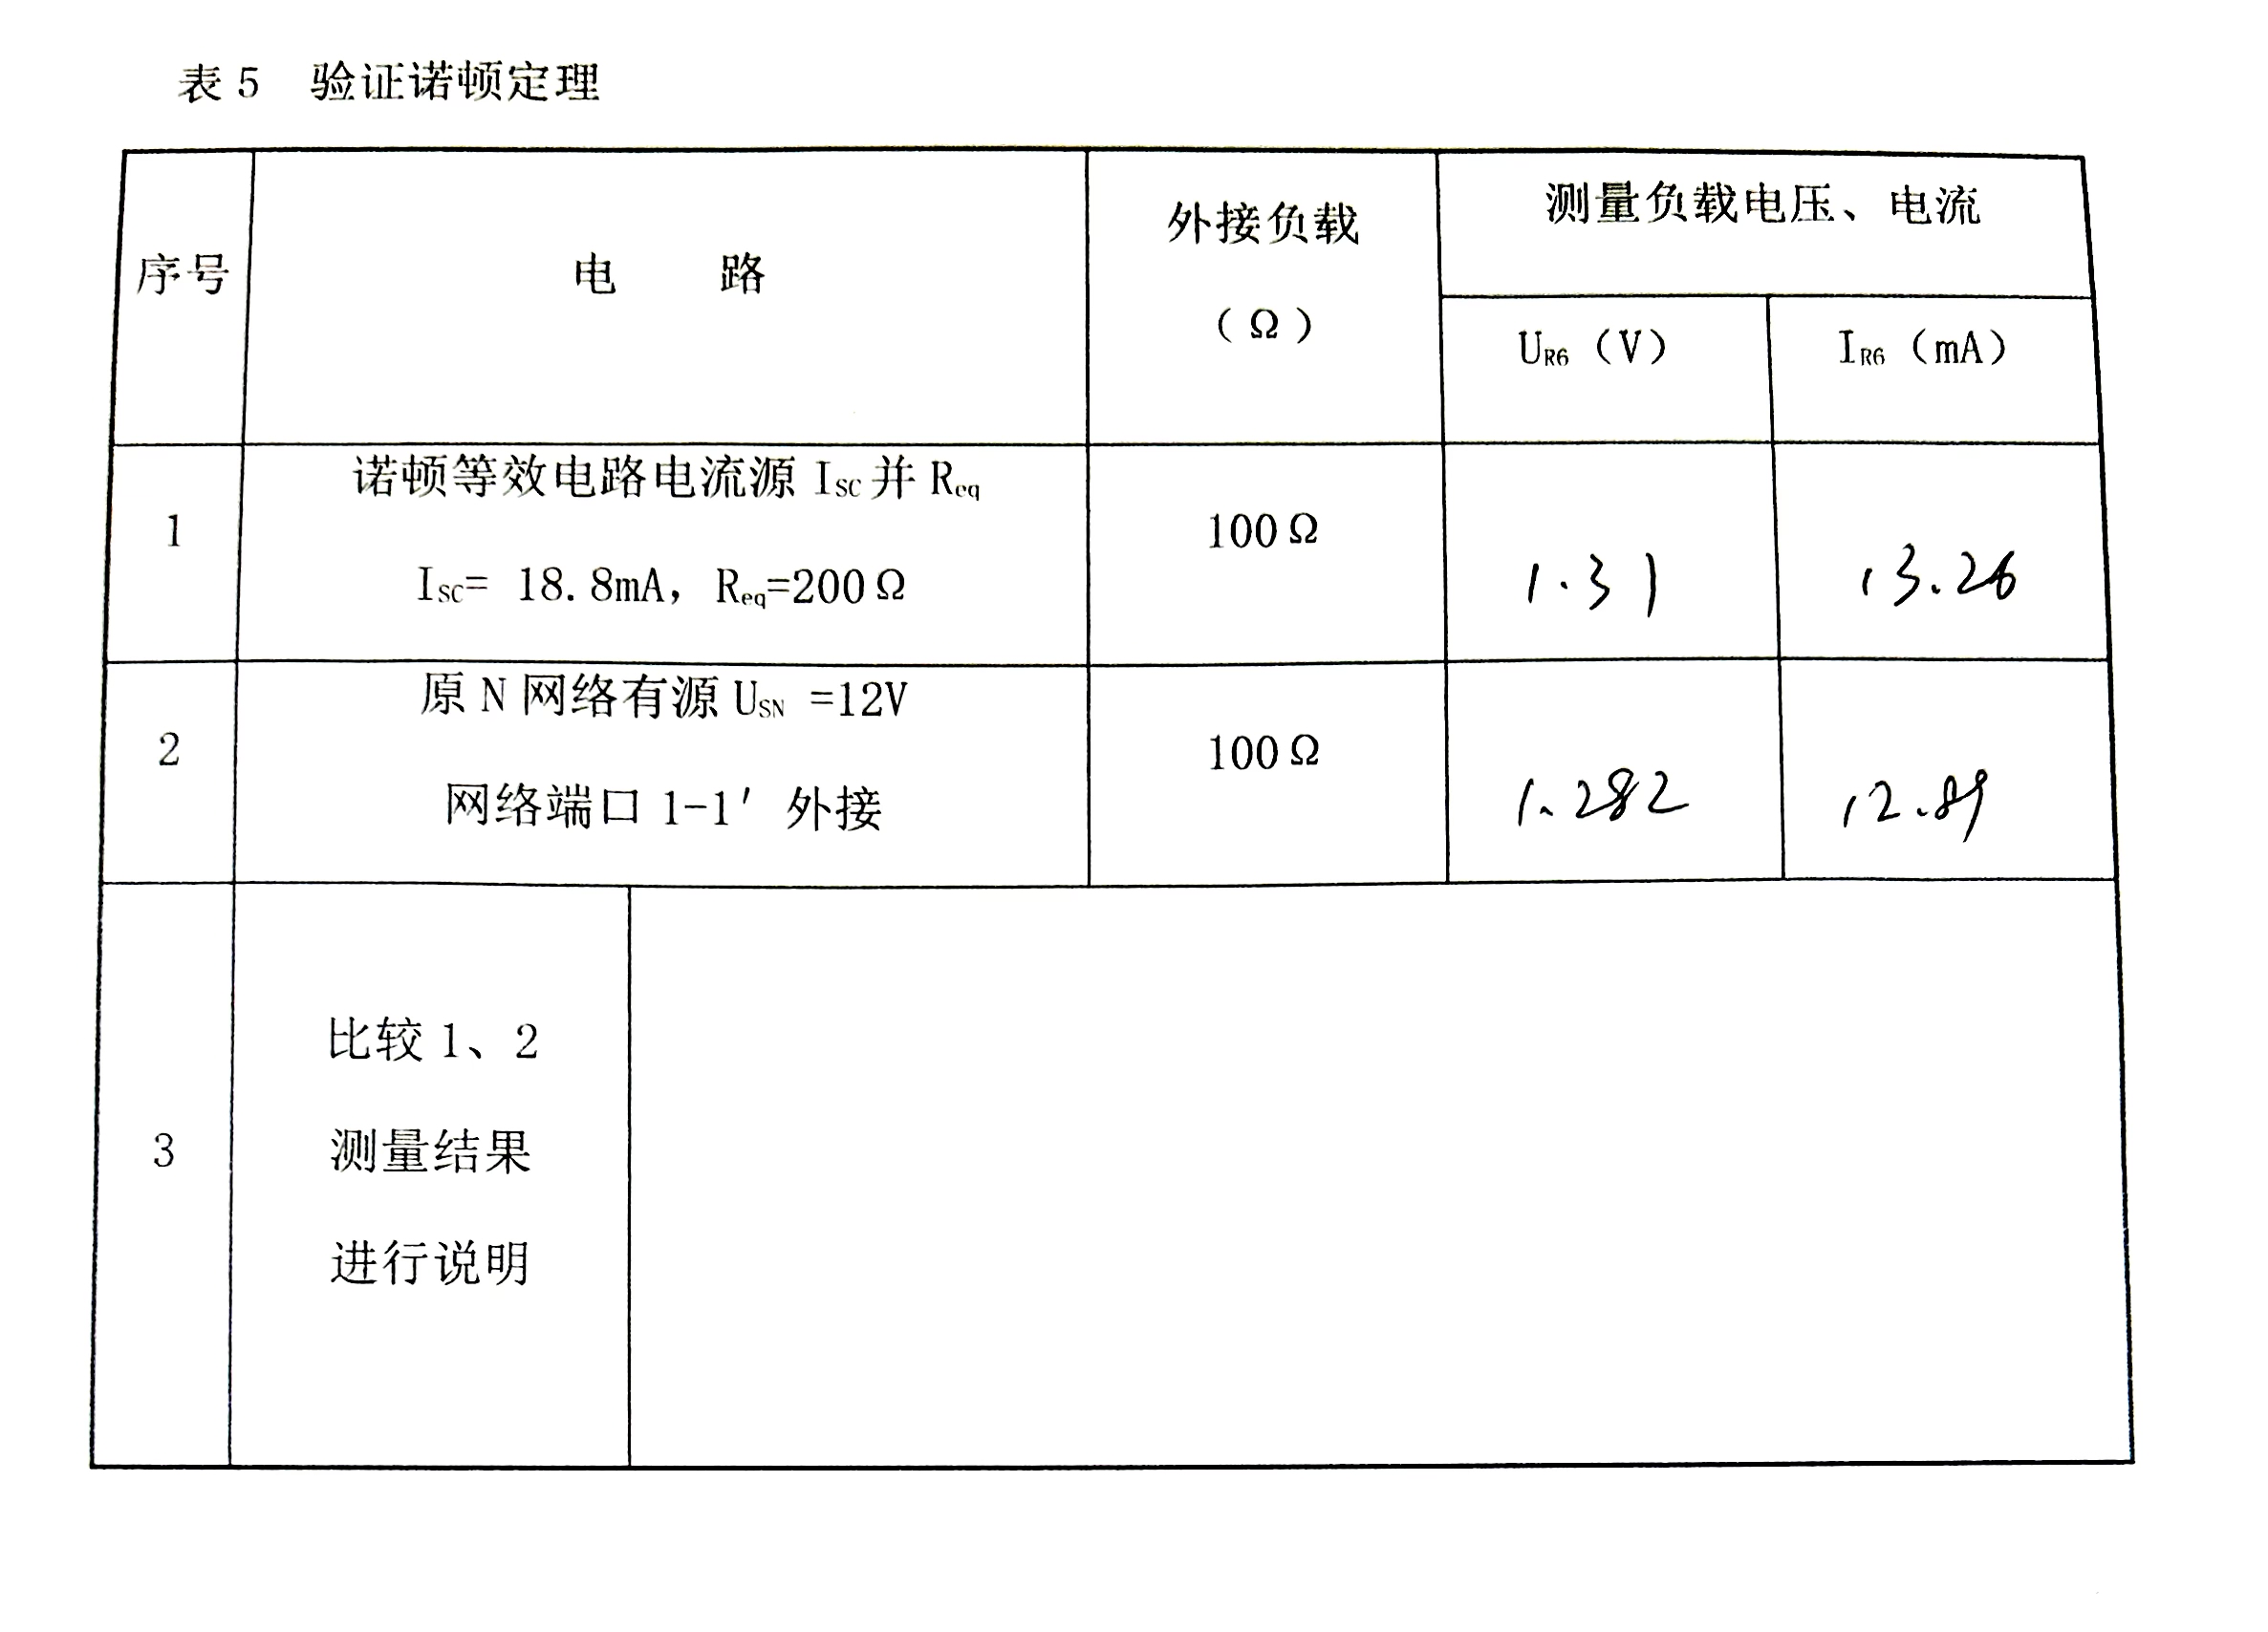 表5 验证诺顿定理
序号
电 路
外接负载
（Ω）
测量负载电压、电流
UR6（V）
IR6（mA）
1
诺顿等效电路电流源 ISC并 Req
ISC= 18.8mA，Req=200Ω
100Ω
1.31
13.26
2
原 N 网络有源 USN =12V
网络端口 1-1′ 外接
100Ω
1.282
12.89
3
比较 1、2
测量结果
进行说明